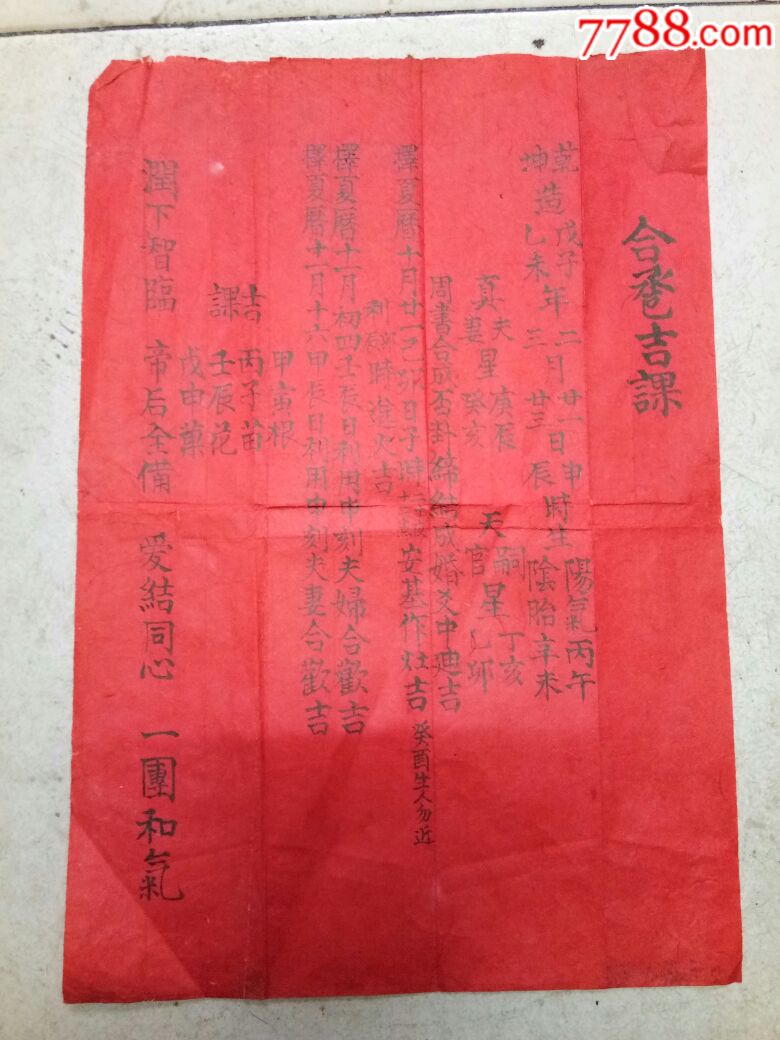 7788.com
合巹吉課
乾造戊子年二月廿一日申時生 陽氣丙午
坤造乙未年三月廿三日辰時生 陰胎辛未
真夫星庚辰 天嗣星丁亥
真妻星癸亥 天官星乙卯
周書合成否卦締結成婚爻中廸吉
擇夏曆十月廿一己卯日子時安基作灶吉 癸酉生人勿近
時進火吉
擇夏曆十一月初四壬辰日利用申刻夫婦合歡吉
擇夏曆十一月十六甲辰日利用申刻夫妻合歡吉
甲寅根
吉課 丙子苗
壬辰花
戊申菓
潤下智臨 帝后全備 愛結同心 一團和氣